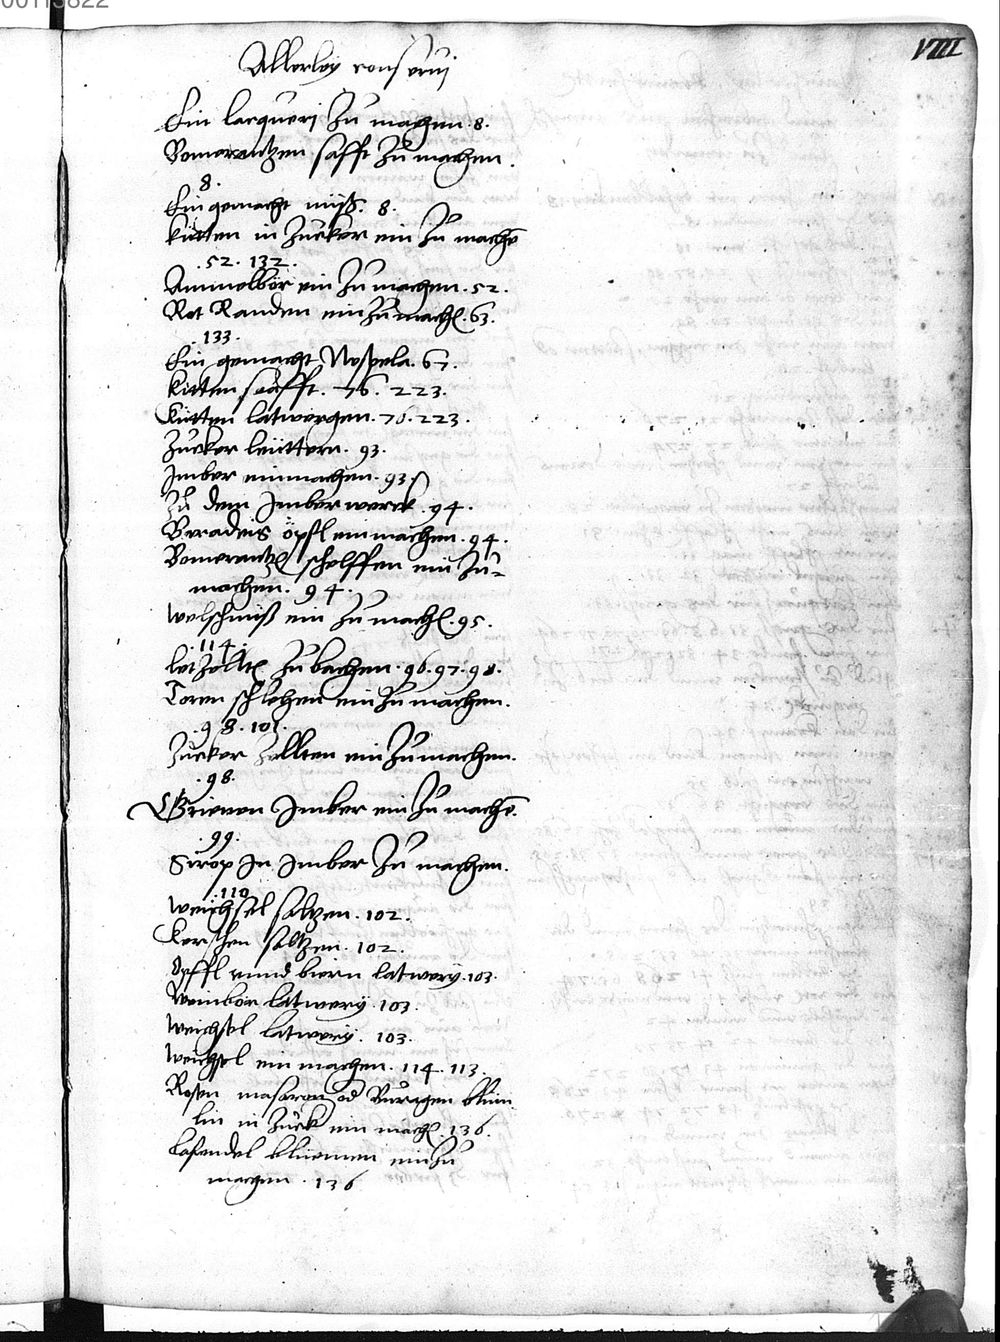 00113822
VIII
Allerley conserui
Ein lacqueri Zu machen. 8.
Bomerantzen safft Zu machen.
8.
Ein gemacht nuß. 8.
kütten in Zucker ein Zu mache
. 52. 132.
Ammelbör ein Zu machen. 52.
Rot Randen ein Zu mach. 63.
133.
Ein gemacht Nespela. 67.
kitten safft. 76. 223.
Kütten latwergen. 76. 223.
Zucker leüttern. 93.
Jmber einmachen. 93.
Zu dem Jmber werck. 94.
Beradeis öpfl einmachen. 94.
Bomerantz schelffen ein Zu=
machen. 94.
welschnuß ein Zu mach. 95.
. 114.
Zu bachen. 96. 97. 98.
Toren schlehen ein Zu machen.
. 98. 101.
Zucker Zellten ein Zu machen.
. 98.
Grienen Jmber ein Zu mache.
. 99.
Sirop Jn Jmber Zu machen.
. 110
weichsel saltzen. 102.
Kerschen saltzen. 102.
Opffl vnnd biern latwery. 103.
Weinbör latwery. 103.
Weichsel latwery. 103.
Weichsel ein machen. 114. 113.
Rosen masaron od Buragen blüm
lin in Zuck ein mach. 136.
Lafendel blüemen ein Zu
machen. 136